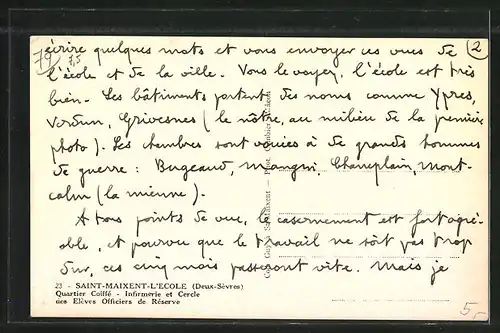 2
79 7,5
écrire quelques mots et vous envoyer ces vues de
l'école et de la ville. Vous le voyez, l'école est très
bien. Les bâtiments portent des noms comme Ypres,
Verdun, Grivesnes (le nôtre, au milieu de la première
photo). Les chambres sont vouées à de grands hommes
de guerre : Bugeaud, Mangin, Champlain, Mont-
calm (la mienne).
A tous points de vue, le casernement est fort agré-
able, et pourvu que le travail ne soit pas trop
dur, ces cinq mois passeront vite. Mais je
23 - SAINT-MAIXENT-L'ECOLE (Deux-Sèvres)
Quartier Coiffé - Infirmerie et Cercle
des Elèves Officiers de Réserve
5,-